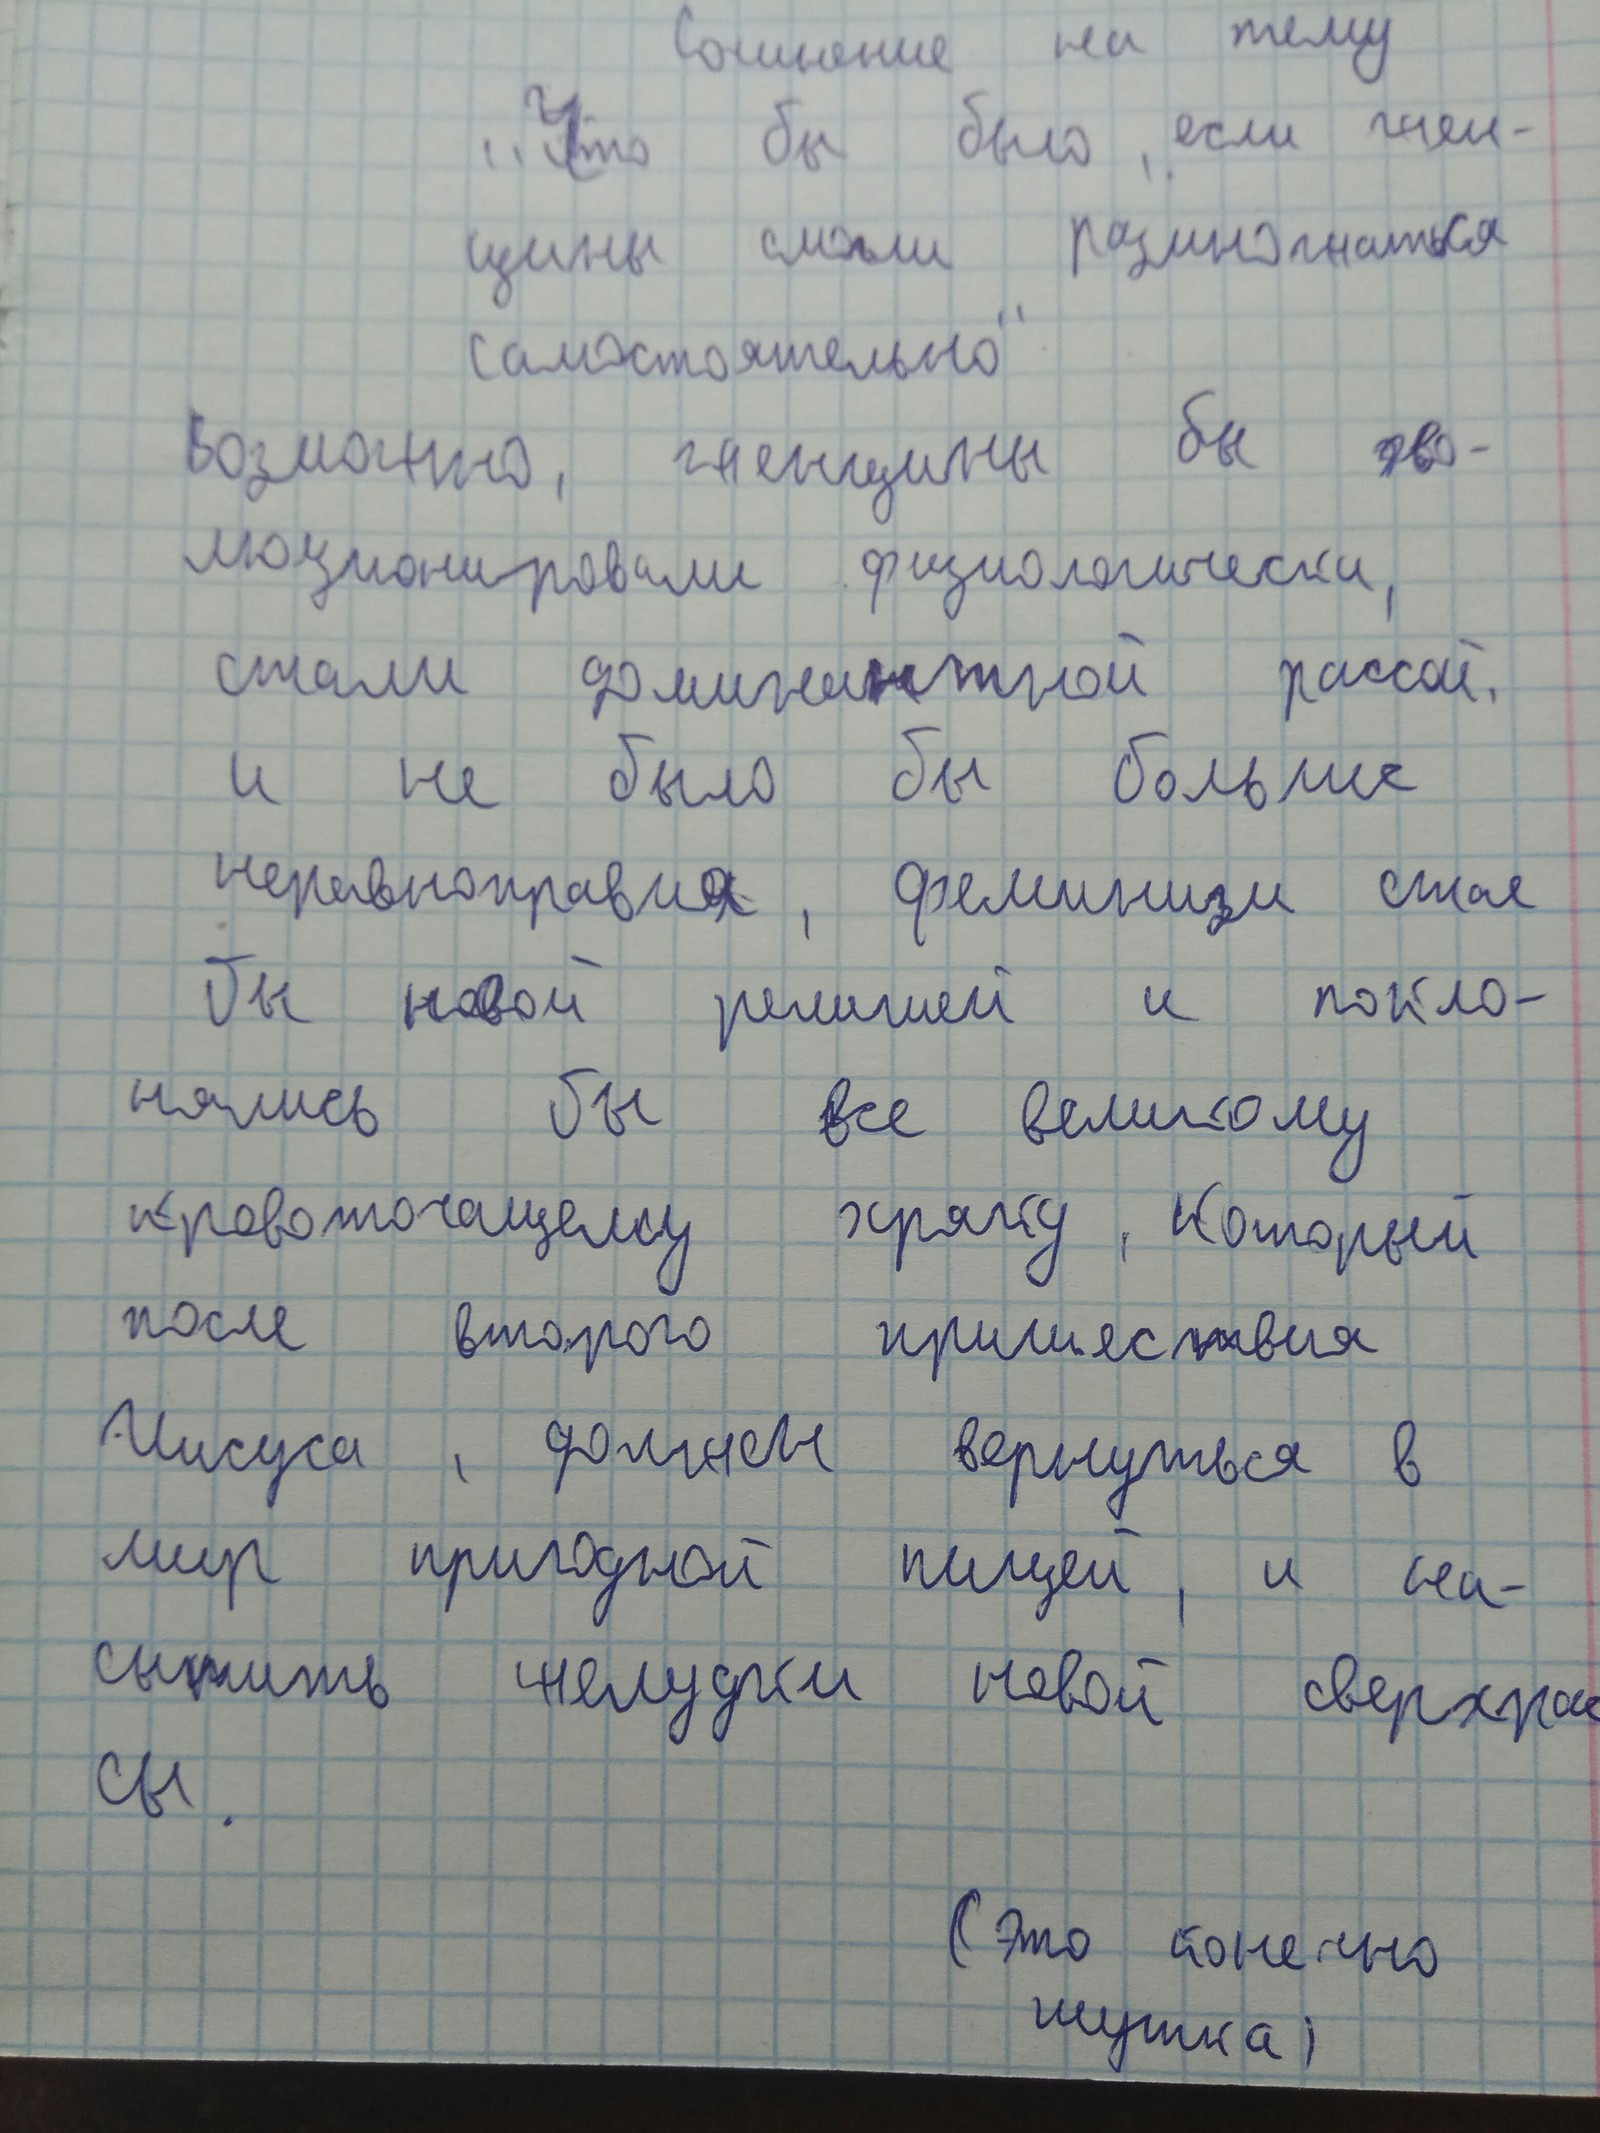 Сочинение на тему
„Что бы было, если жен-
щины смогли размножаться
самостоятельно"
Возможно, женщины бы эво-
люционировали физиологически,
стали доминантной рассой,
и не было бы больше
неравноправия, феминизм стал
бы новой религией и покло-
нялись бы все великому
кровоточащему хряку, который
после второго пришествия
Иисуса, должен вернуться в
мир пригодной пищей, и на-
сытить желудки новой сверхрас
сы.
(Это конечно
шутка)